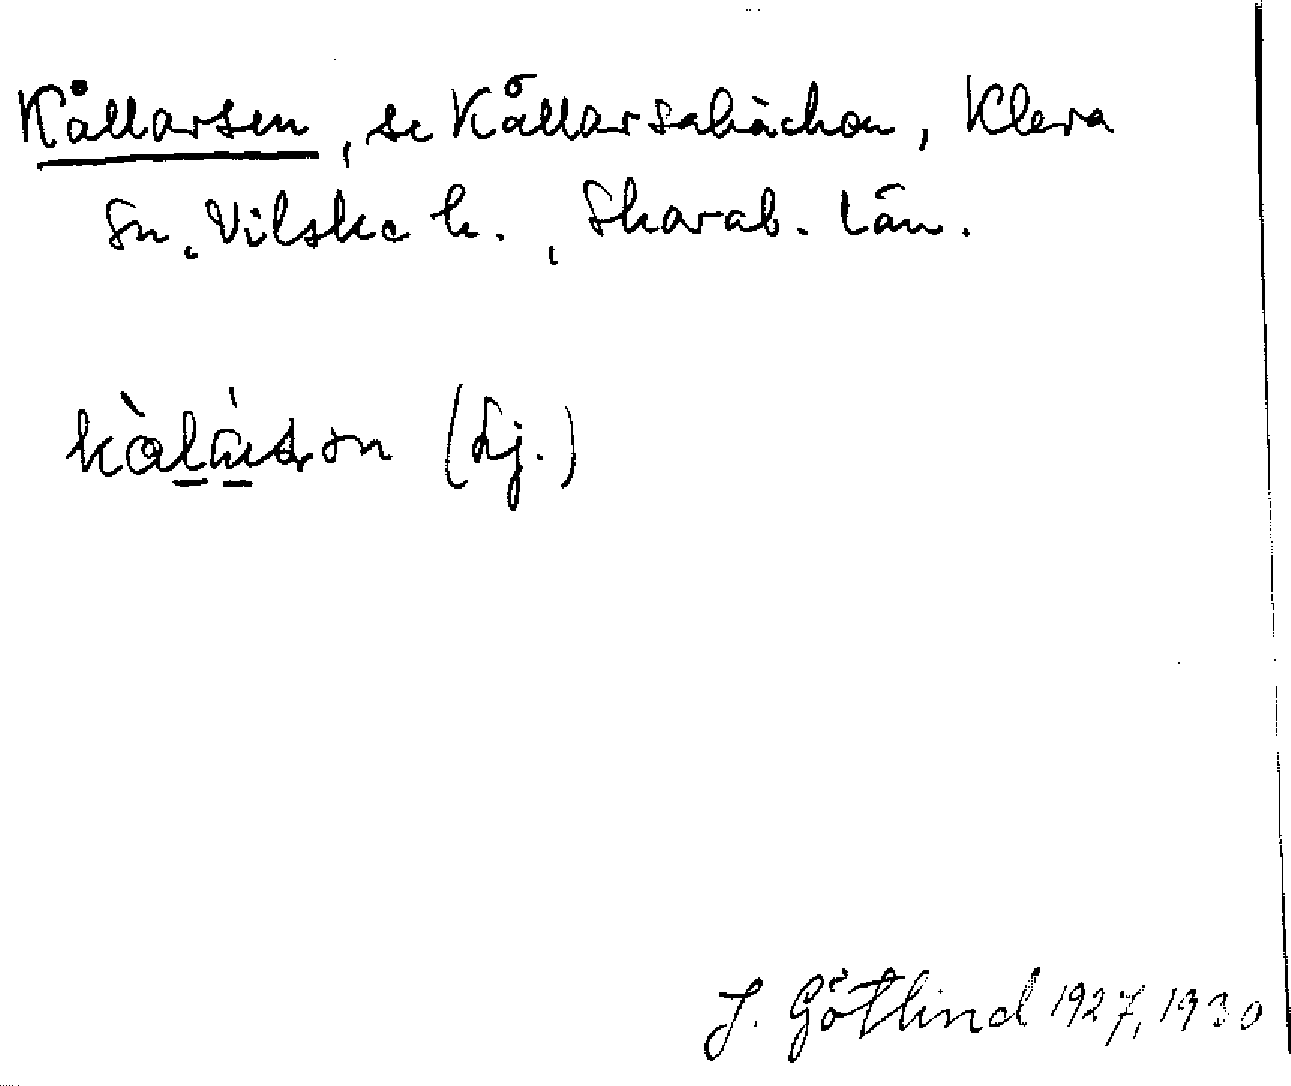 Kållarsen, se Kållarsabäcken, Kleva
Sn, Vilske h., Skarab. län.
(Lj.)
J. Götlind 1927, 1930